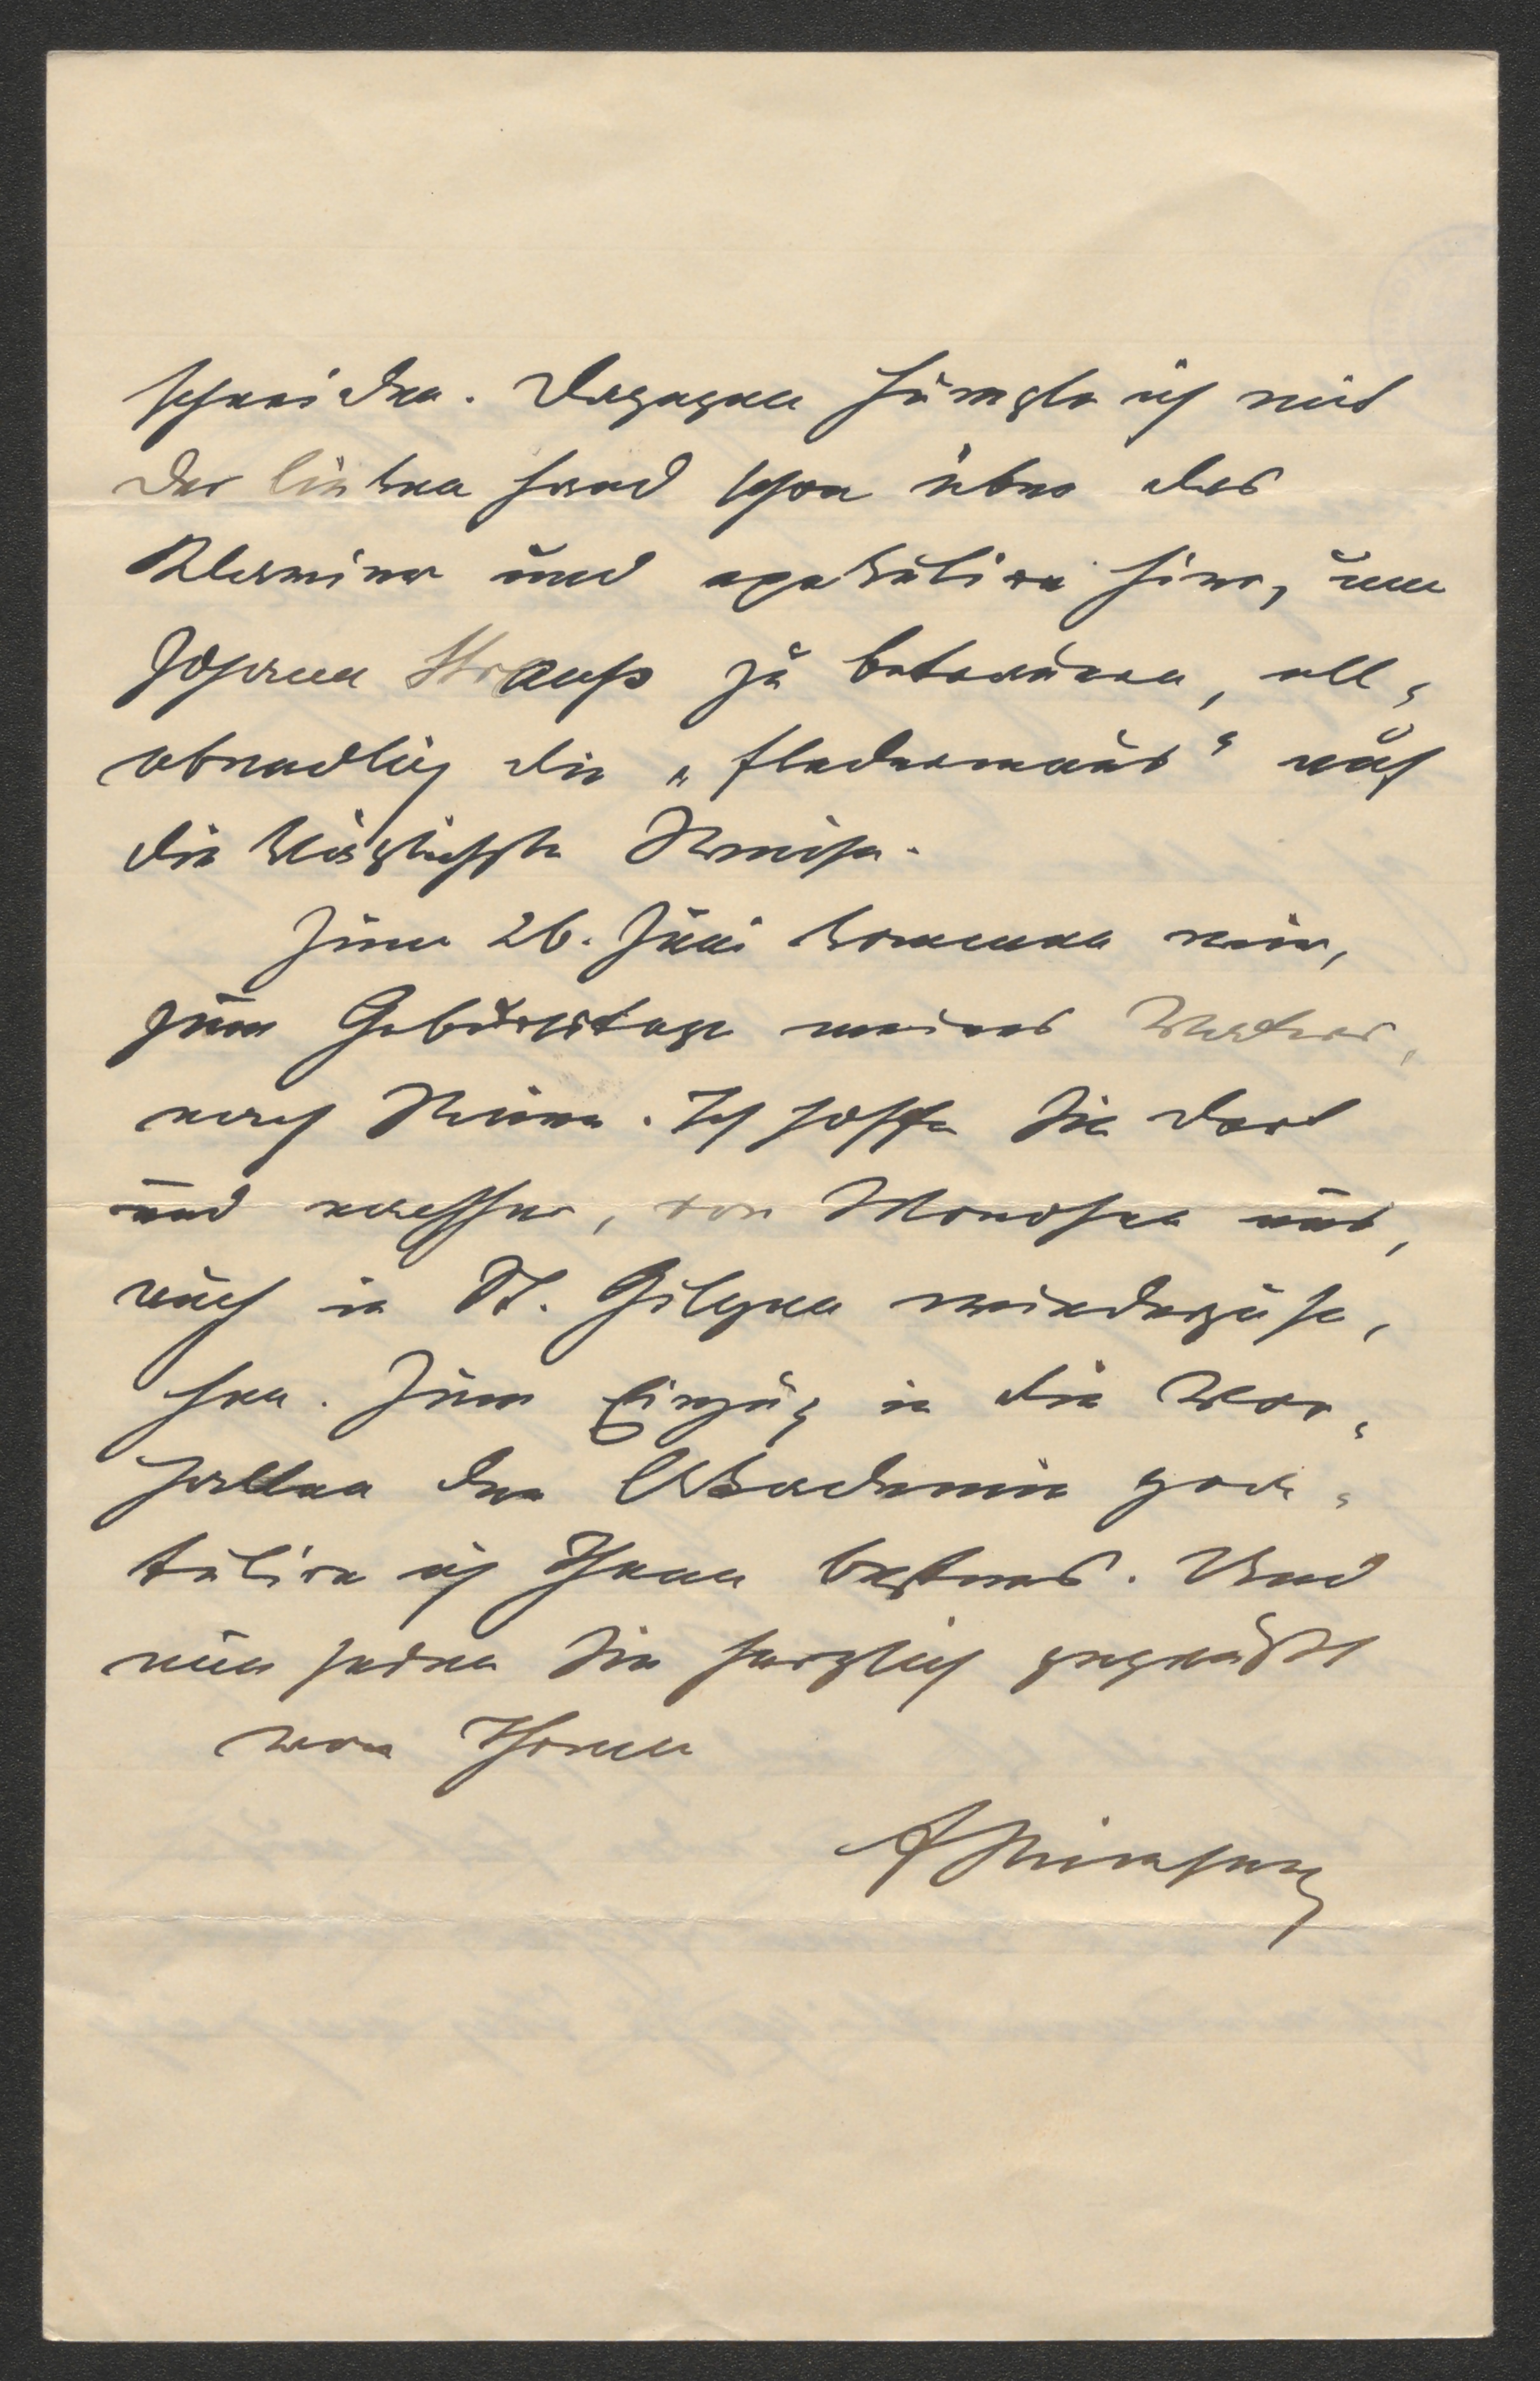 schneiden. Dagegen humple ich mit
der linken Hand schon über das
Klavier und exekutire hier, um
Johann Strauß zu betrauern, all-
abendlich die „Fledermaus“ auf
die kläglichste Weise.
Zum 26. Juni kommen wir,
zum Geburtstage meines Vaters,
nach Wien. Ich hoffe Sie dort
und nachher, von Mondsee aus,
auch in St. Gilgen wiederzuse-
hen. Zum Einzug in die Vor-
hallen der Akademie gra-
tulire ich Ihnen bestens. Und
nun seien Sie herzlich gegrüßt
von Ihrem